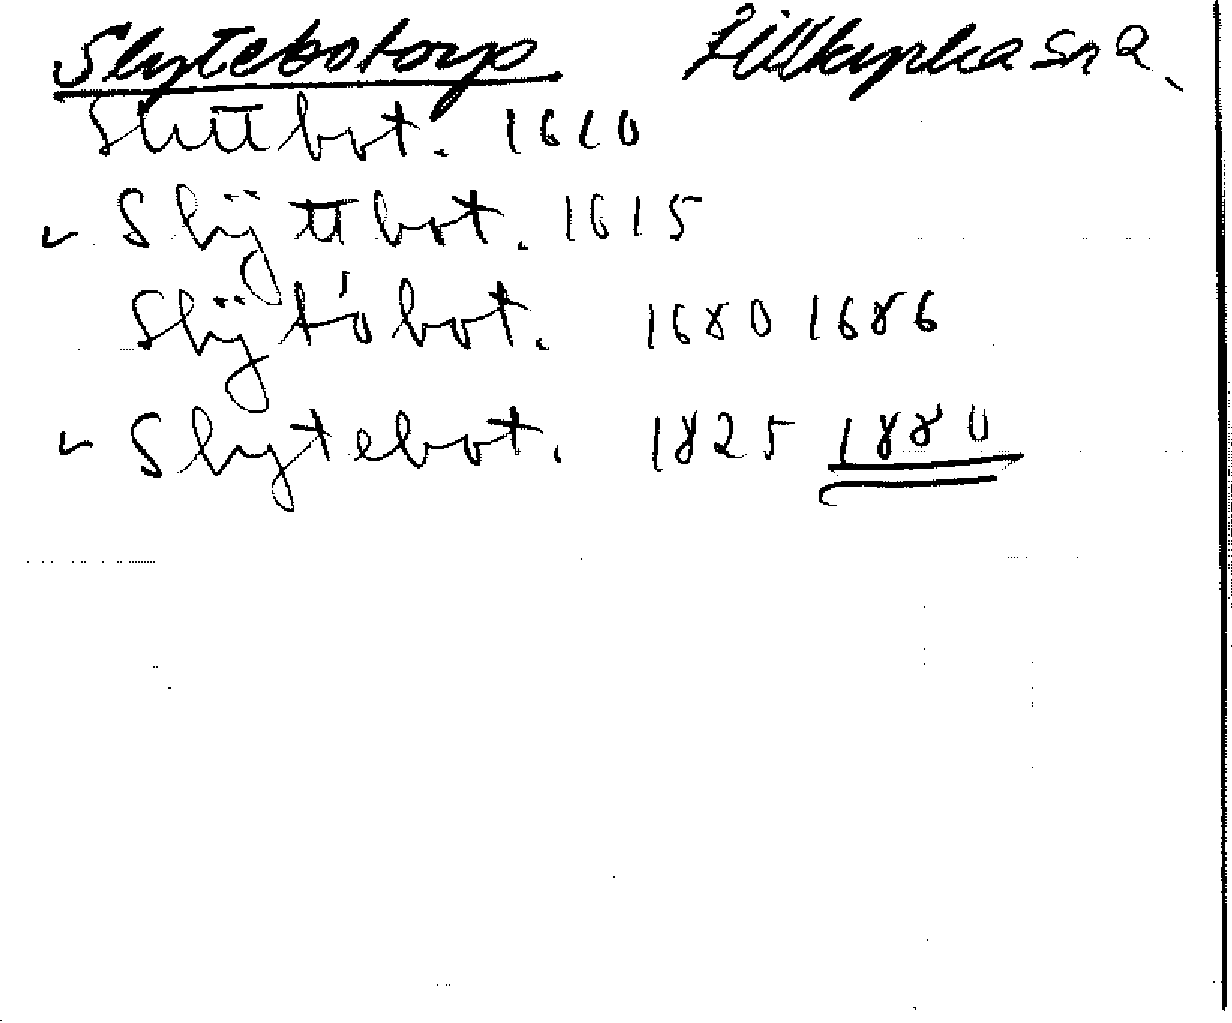 Skytebotorp Lillkyrka Sn
Skuttbot. 1610
Skÿttbot. 1615
Skÿtóbot. 1680 1686
Skytebot. 1825 1880